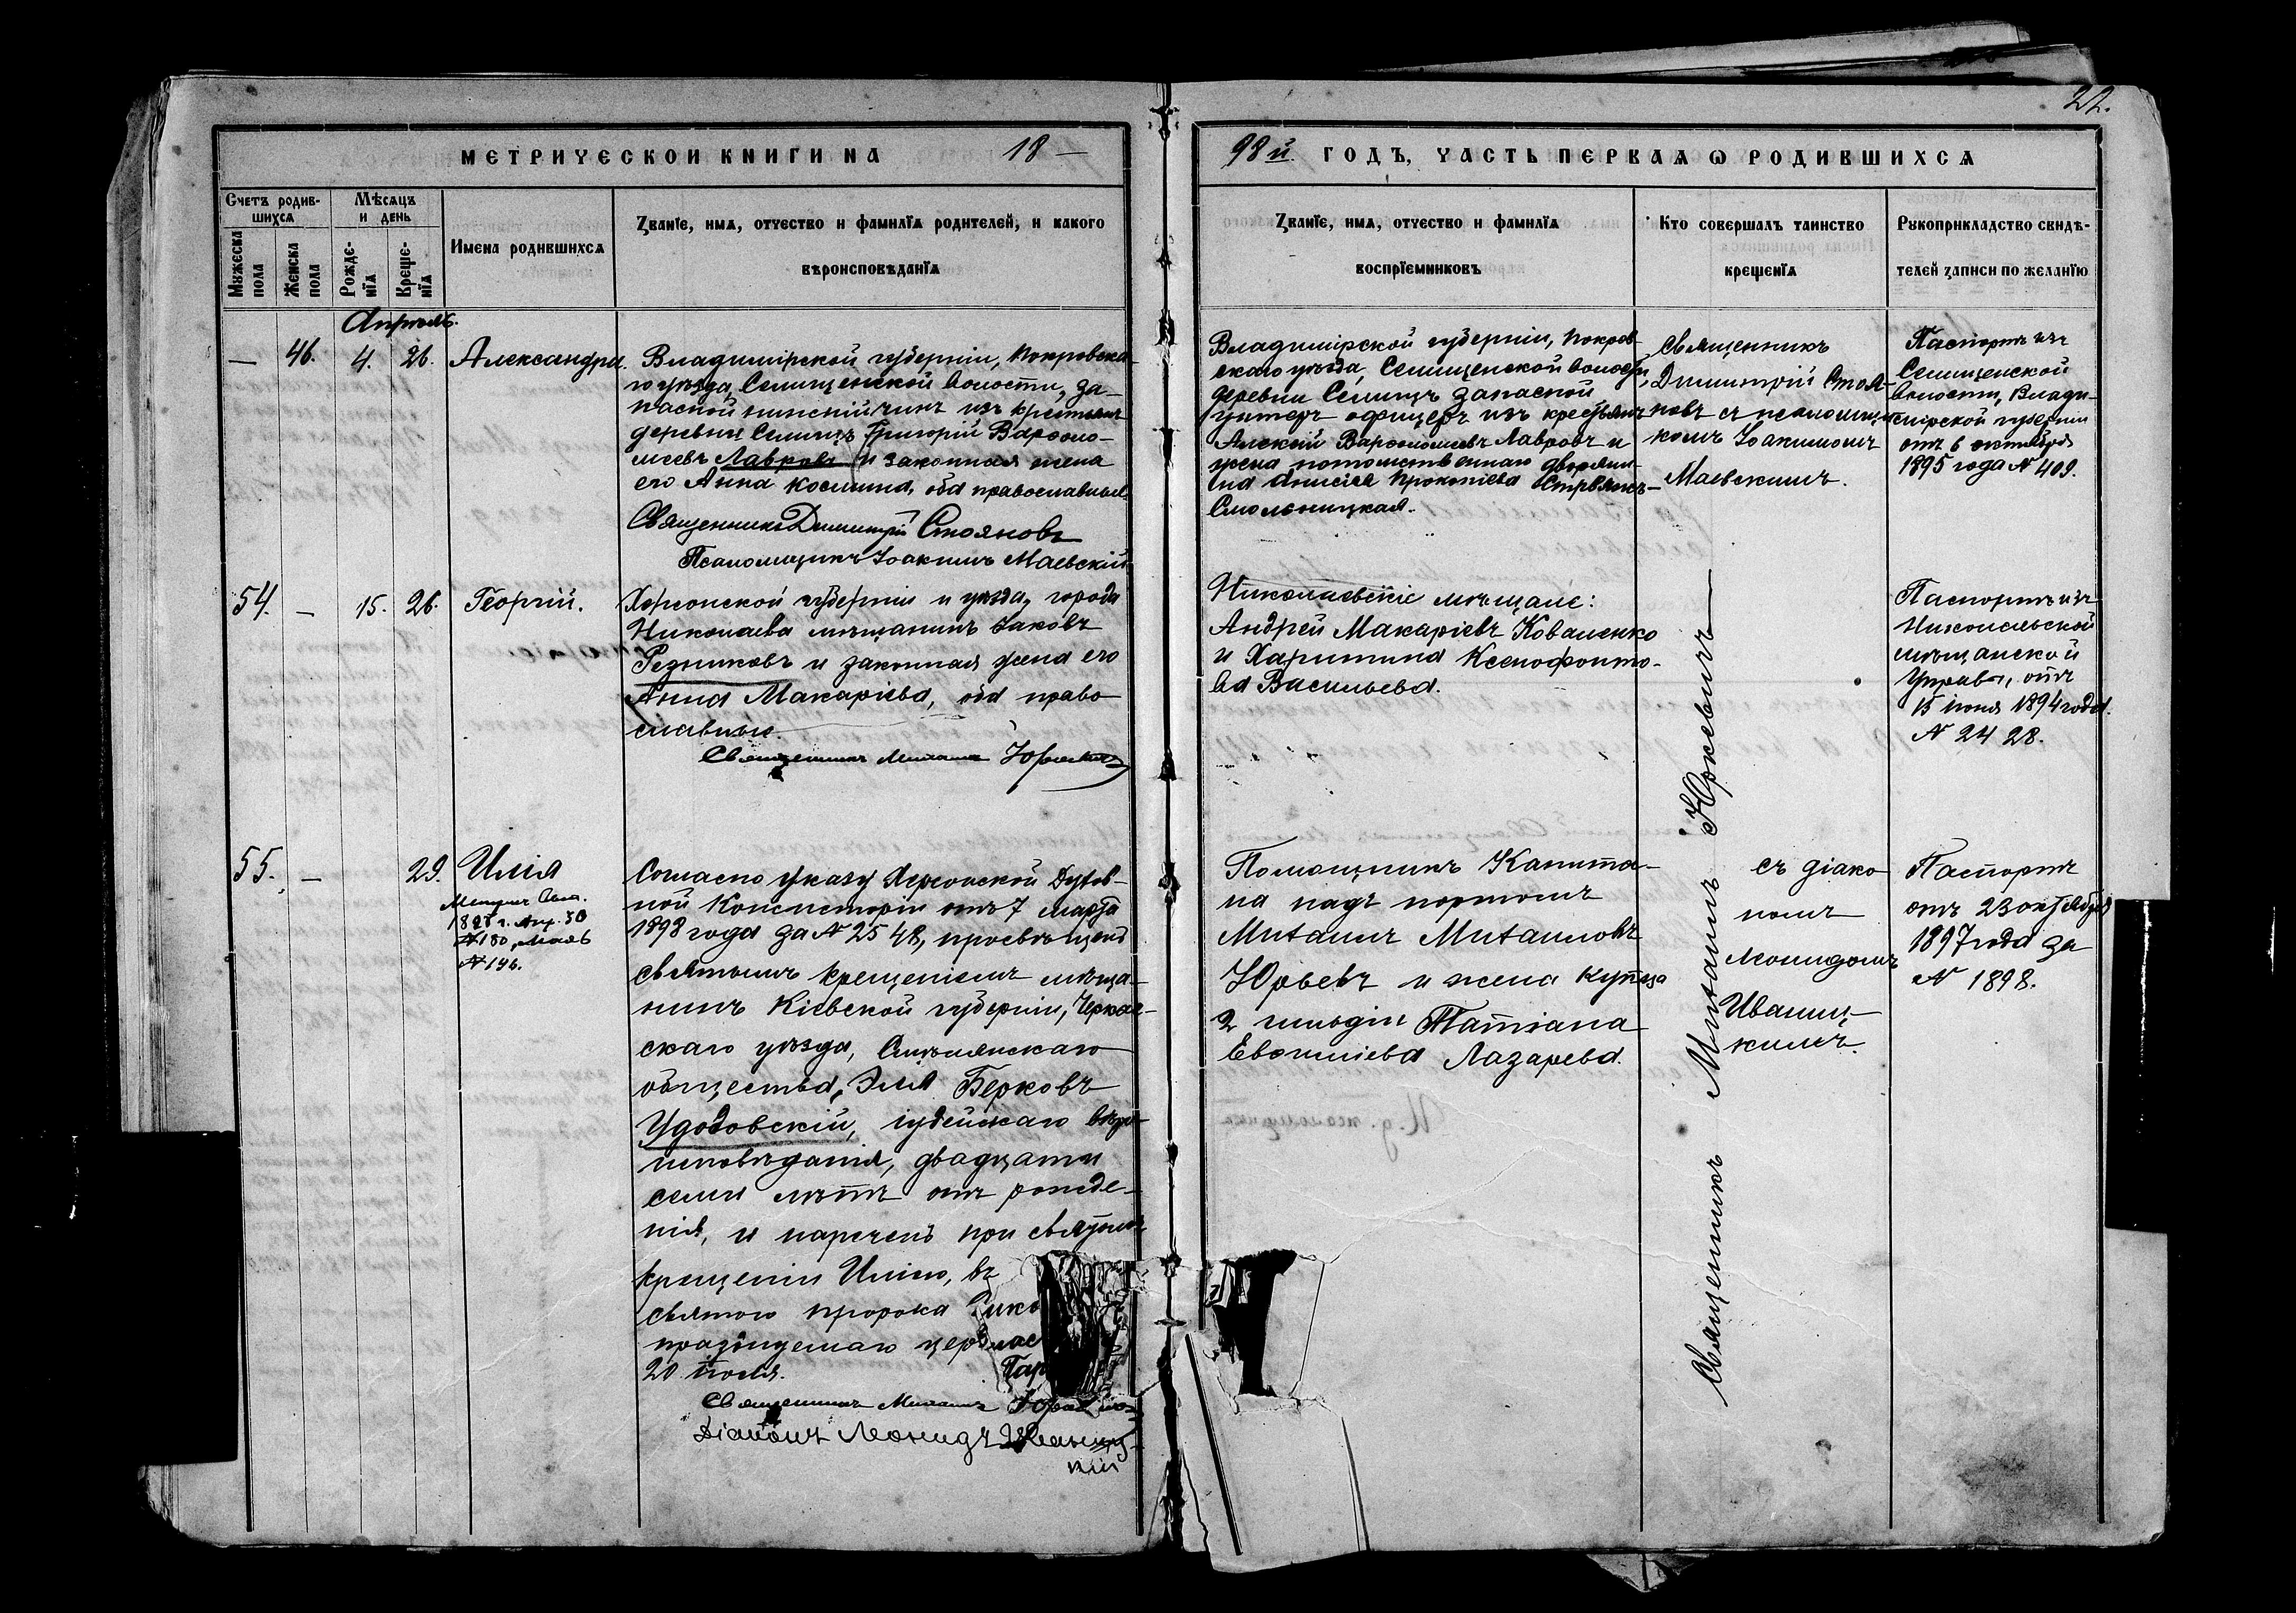 22.
МЕТРИЧЕСКОЙ КНИГИ НА 18
98й. ГОДЪ, ЧАСТЬ ПЕРВАЯ Ѡ РОДИВШИХСЯ
Счетъ родив-
шихся
Мѣсяцъ
и день
Мужеска
пола
Женска
пола
Рожде-
нїя
Креще-
нїя
Имена родившихся
Званїе, имя, отчество и фамилїя родителей, и какого
вѣроисповѣданїя
Званїе, имя, отчество и фамилїя
воспрїемниковъ
Кто совершалъ таинство
крещенїя
Рукоприкладство свидѣ-
телей записи по желанїю
Апрѣль.
— 46. 4. 26. Александра.
Владимірской губерніи, Покровска-
го уѣзда, Селищенской волости, за-
пасной нижній чинъ изъ крестьянъ
деревни Селищъ Григорій Варѳоло-
меевъ Лавровъ и законная жена
его Анна Космина, оба православные.
Священникъ Димитрій Стояновъ
Псаломщикъ Іоакимъ Маевскій
Владимірской губерніи, Покров-
скаго уѣзда, Селищенской волости,
деревни Селищъ запасной
унтеръ-офицеръ изъ крестьянъ
Алексій Варѳоломеевъ Лавровъ и
жена потомственнаго дворяни-
на Анисія Прокопіева
Смольницкая.
Священникъ
Димитрій Стоя-
новъ съ псаломщи-
комъ Іоакимомъ
Маевскимъ.
Паспортъ изъ
Селищенской
волости, Влади-
мірской губерніи
отъ 6 октября
1895 года № 409.
54. — 15. 26. Георгій.
Херсонской губерніи и уѣзда, города
Николаева мѣщанинъ Іаковъ
Резниковъ и законная жена его
Анна Макаріева, оба право-
славные.
Священникъ Михаилъ Юркевичъ
Николаевскіе мѣщане:
Андрей Макаріевъ Коваленко
и Харитина Ксенофонто-
ва Васильева.
Священникъ Михаилъ Юркевичъ
Паспортъ изъ
Николаевской
мѣщанской
Управы, отъ
15 іюня 1894 года.
№ 2428.
55. — 29. Илія
1898 г. Апр. 30
№ 180, Мая 6
№ 196.
Согласно указу Херсонской Духов-
ной Консисторіи отъ 7 марта
1898 года за № 2548, просвѣщенъ
святымъ крещеніемъ мѣща-
нинъ Кіевской губерніи, Черкас-
скаго уѣзда, Смѣлянскаго
общества, Эля Берковъ
Удодовскій, іудейскаго вѣро-
исповѣданія, двадцати
семи лѣтъ отъ рожде-
нія, и нареченъ при святомъ
крещеніи Иліею, въ
святого пророка
празднуемаго
20 іюля.
Священникъ Михаилъ Юркевичъ
Діаконъ Леонидъ Иваниц-
кій
Помощникъ Капита-
на надъ портомъ
Михаилъ Михаиловъ
Юрьевъ и жена купца
2 гильдіи Татіана
Евѳиміева Лазарева.
съ діако-
номъ
Леонидомъ
Иваниц-
кимъ.
Паспортъ
отъ 23 октября
1897 года за
№ 1898.